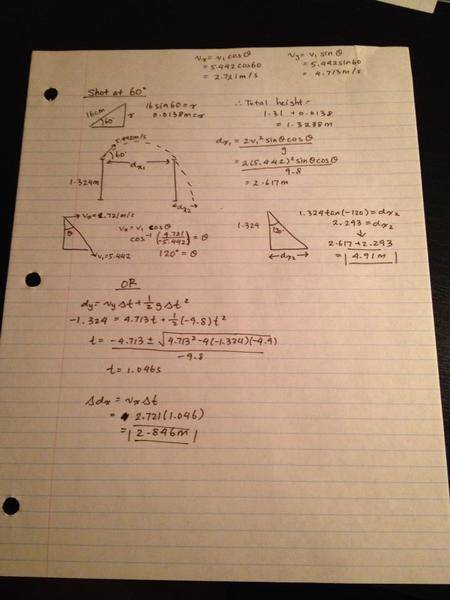 vx = v1 cosθ
= 5.442cos60
= 2.721m/s
vy = v1 sinθ
= 5.442sin60
= 4.713m/s
Shot at 60°
16cm
60°
r
16sin60 = r
0.0138m = r
∴ Total height =
1.31 + 0.0138
= 1.3238m
5.442m/s
60°
dx1
1.324m
dx2
dx1 = 2v1² sinθcosθ
g
= 2(5.442)² sinθcosθ
9.8
= 2.617m
θ
v1 = 5.442
vx = v1 cosθ
cos⁻¹ ( 2.721
-5.442 ) = θ
120° = θ
1.324
120
dx2
1.324tan(-120) = dx2
2.293 = dx2
↓
2.617 + 2.293
= |4.91m|
OR
dy = vyΔt + 1/2 gΔt²
-1.324 = 4.713t + 1/2(-9.8)t²
t = -4.713 ± √4.713² - 4(-1.324)(-4.9)
-9.8
t = 1.046s
Δdx = vxΔt
= 2.721(1.046)
= |2.846m|